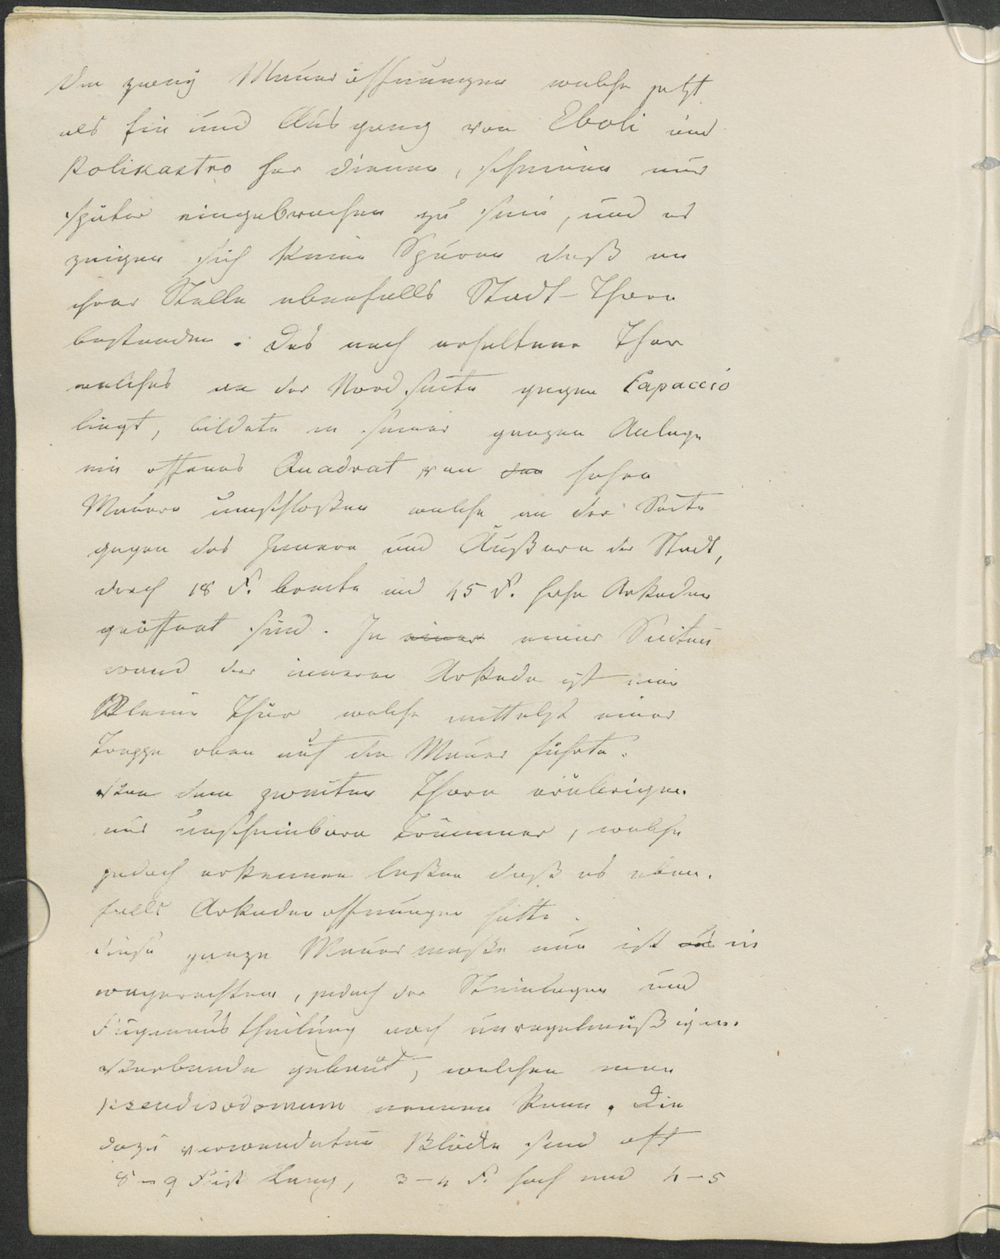 Die zweÿ Maueröffnungen welche jetzt
als Ein und Ausgang von Eboli und
Polikastro her dienen, scheinen nur
später eingebrochen zu sein, und es
zeigen sich keine Spuren daß an
ihrer Stelle ebenfalls Stadt-Thore
bestanden. Das noch erhaltene Thor
welches an der Nordseite gegen Capaccio
liegt, bildete in seiner ganzen Anlage
ein offenes Quadrat von hohen
Mauern umschloßen welche an der Seite
gegen das Innere und Äußere der Stadt,
durch 18 F. breite und 45 F. hohe Arkaden
geöffnet sind. In einer Seiten
wand der inneren Arkade ist eine
kleine Thür welche mittelst einer
Treppe oben auf die Mauer führte.
Von dem zweiten Thore erübrigen
nur unscheinbare Trümmer, welche
jedoch erkennen laßen daß es eben-
falls Arkadenoffnungen hatte.
Diese ganze Mauermaße nun ist in
wagerechtem, jedoch der Steinlagen und
Fugenaustheilung nach unregelmäßigem
Verbande gebaut, welchen man
pseudisodomum nennen kann. Die
dazu verwendeten Blöcke sind oft
8–9 Fuß lang, 3–4 F. hoch und 4–5